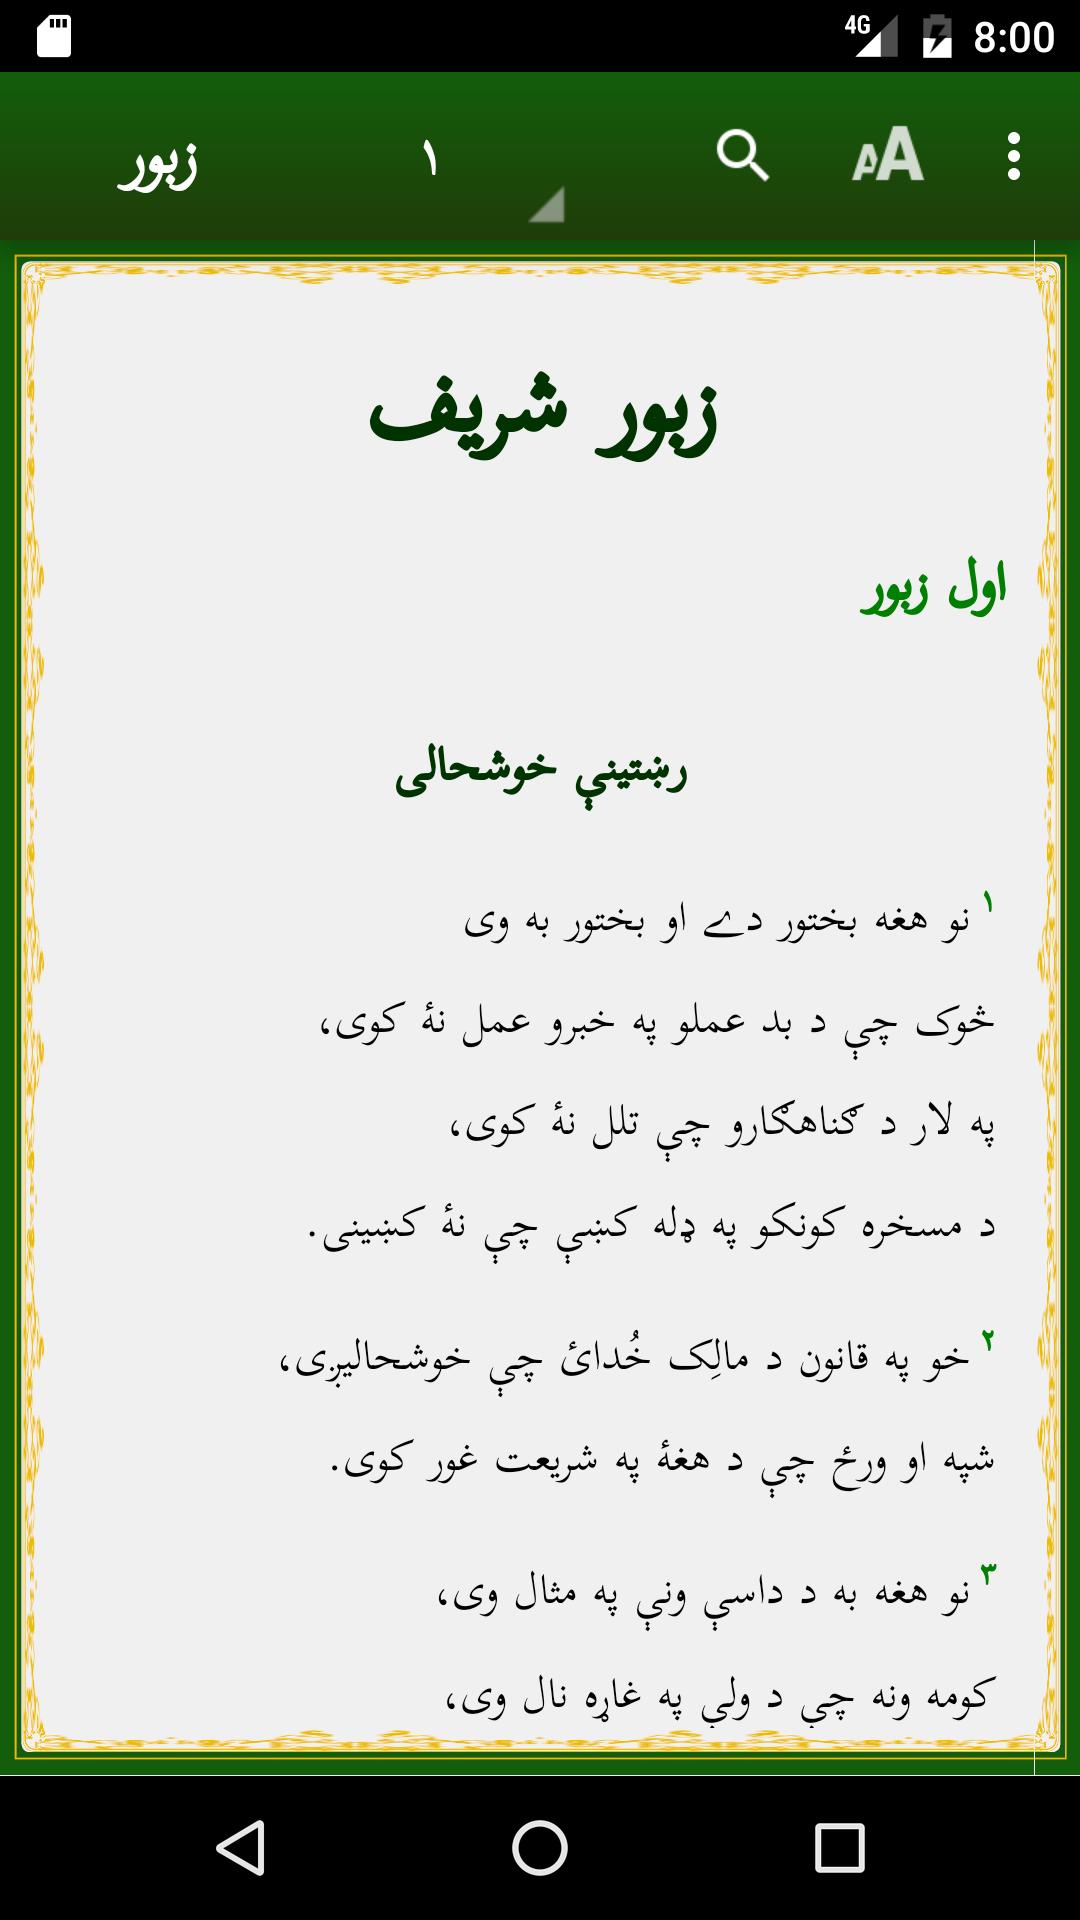 4G 8:00
زبور ۱ AA
زبور شريف
اول زبور
رښتينې خوشحالى
۱ نو هغه بختور دے او بختور به وى
څوک چې د بد عملو په خبرو عمل نۀ کوى،
په لار د ګناهګارو چې تلل نۀ کوى،
د مسخره کونکو په ډله کښې چې نۀ کښينى.
۲ خو په قانون د مالِک خُدائ چې خوشحاليږى،
شپه او ورځ چې د هغۀ په شريعت غور کوى.
۳ نو هغه به د داسې ونې په مثال وى،
کومه ونه چې د ولې په غاړه نال وى،